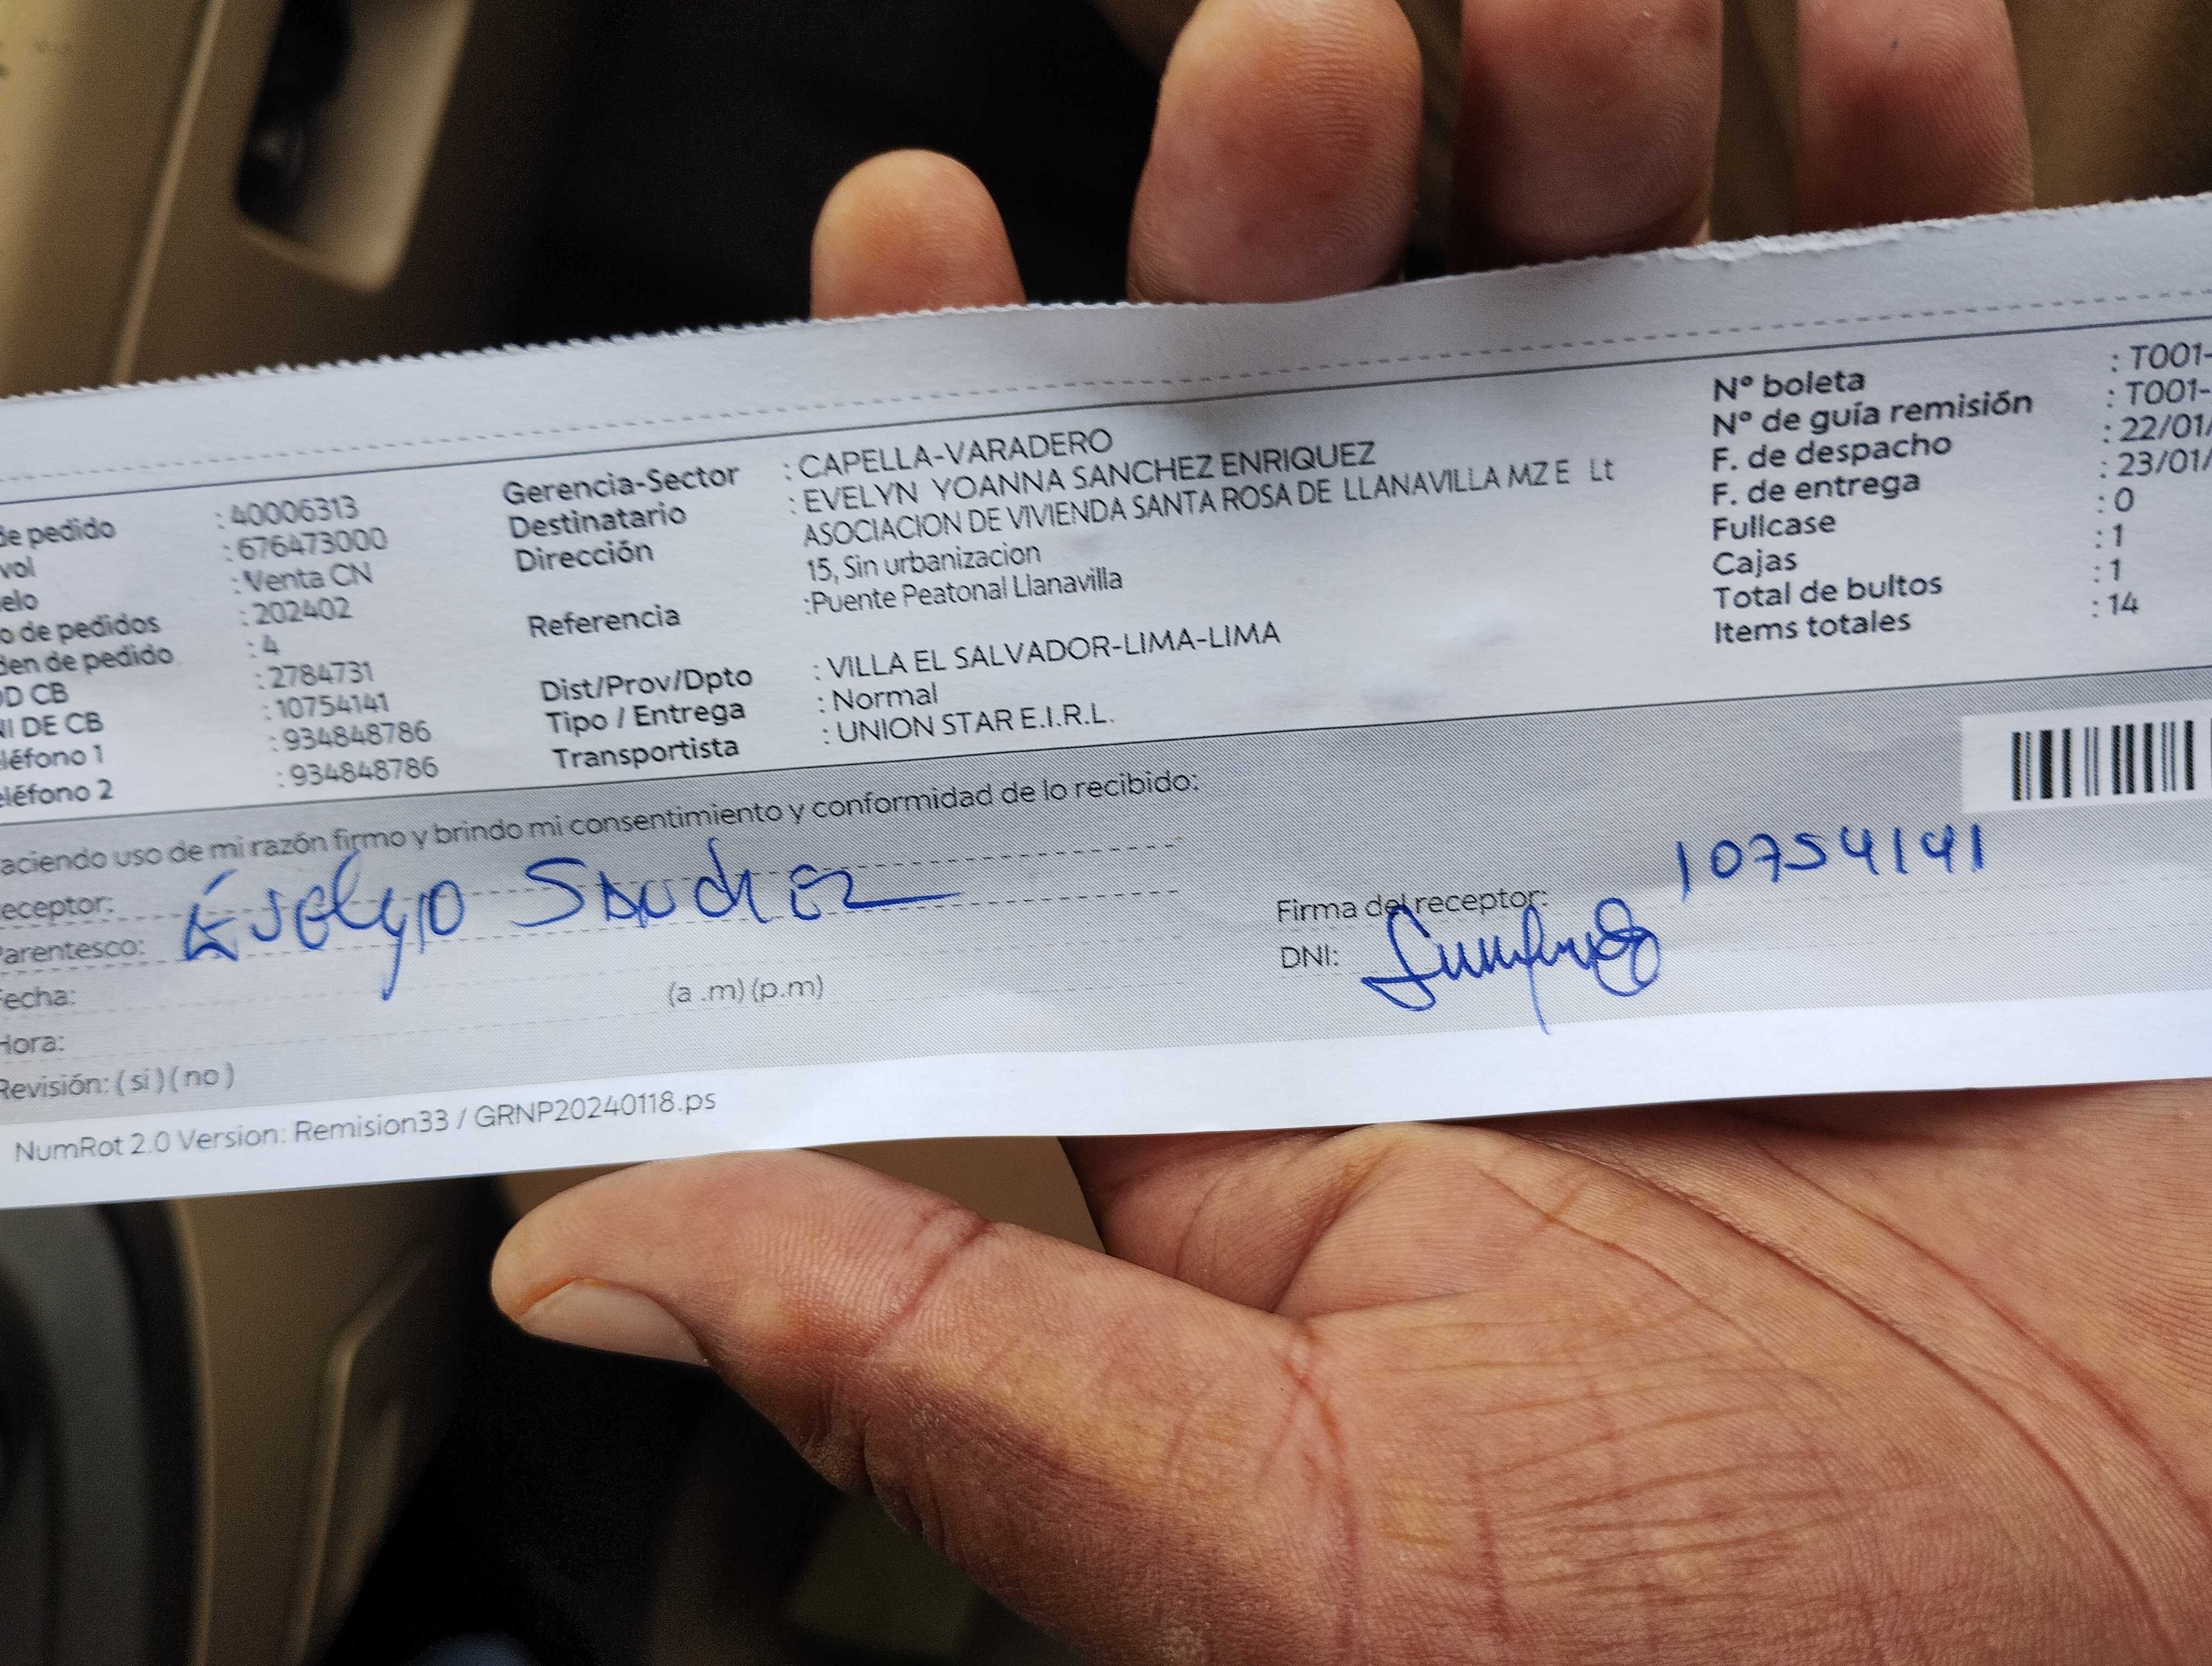 de pedido : 40006313 Gerencia-Sector : CAPELLA-VARADERO Nº boleta : T001-
vol : 676473000 Destinatario : EVELYN YOANNA SANCHEZ ENRIQUEZ Nº de guía remisión : T001-
elo : Venta CN Dirección ASOCIACION DE VIVIENDA SANTA ROSA DE LLANAVILLA MZ E Lt F. de despacho : 22/01/
15, Sin urbanizacion F. de entrega : 23/01/
o de pedidos : 202402 Referencia :Puente Peatonal Llanavilla Fullcase : 0
den de pedido : 4 Cajas : 1
OD CB : 2784731 Dist/Prov/Dpto : VILLA EL SALVADOR-LIMA-LIMA Total de bultos : 1
NI DE CB : 10754141 Tipo / Entrega : Normal Items totales : 14
eléfono 1 : 934848786 Transportista : UNION STAR E.I.R.L.
eléfono 2 : 934848786
aciendo uso de mi razón firmo y brindo mi consentimiento y conformidad de lo recibido:
eceptor: Evelyn Sanchez Firma del receptor: 10754141
Parentesco: DNI:
Fecha:
Hora: (a .m) (p.m)
Revisión: ( si ) ( no )
NumRot 2.0 Version: Remision33 / GRNP20240118.ps